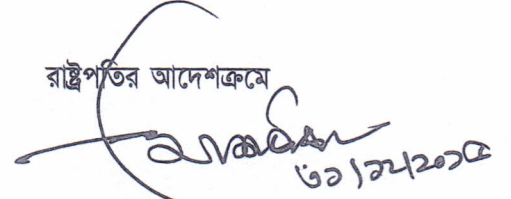 রাষ্ট্রপতির আদেশক্রমে
৩১/১২/২০১৫